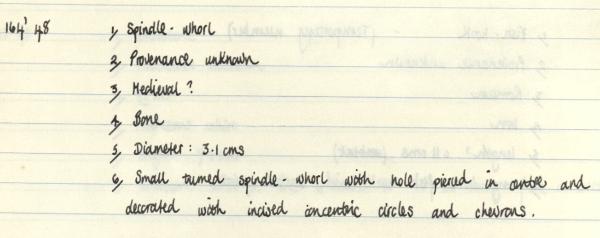 164' 48 1, Spindle-whorl
2, Provenance unknown
3, Medieval?
4, Bone
5, Diameter: 3.1 cms
6, Small turned spindle-whorl with hole pierced in centre and
decorated with incised concentric circles and chevrons.